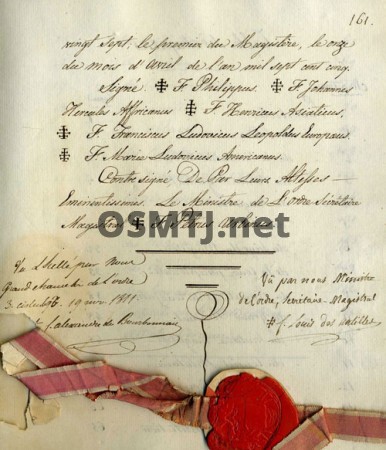 161.
vingt sept; le premier du Magistère, le onze
du mois d'avril de l'an mil sept cent cinq.
Signé. ✠ F. Philippus. ✠ F. Johannes
Hercules Affricanus ✠ F. Henricus Asiaticus.
✠ F. Franciscus Ludovicus Leopoldus Europaus.
✠ F. Maria Ludovicus Americanus.
Contre signé. De Par Leurs Altesses
Eminentissimes. Le Ministre de L'ordre Secrétaire
Magistral ✠ F. Petrus
OSMTJ.net
Vu par nous
Grand chancelier de L'ordre
Vu par nous Ministre
de l'ordre, Secrétaire Magistral
f. louis des
f. alexandre de